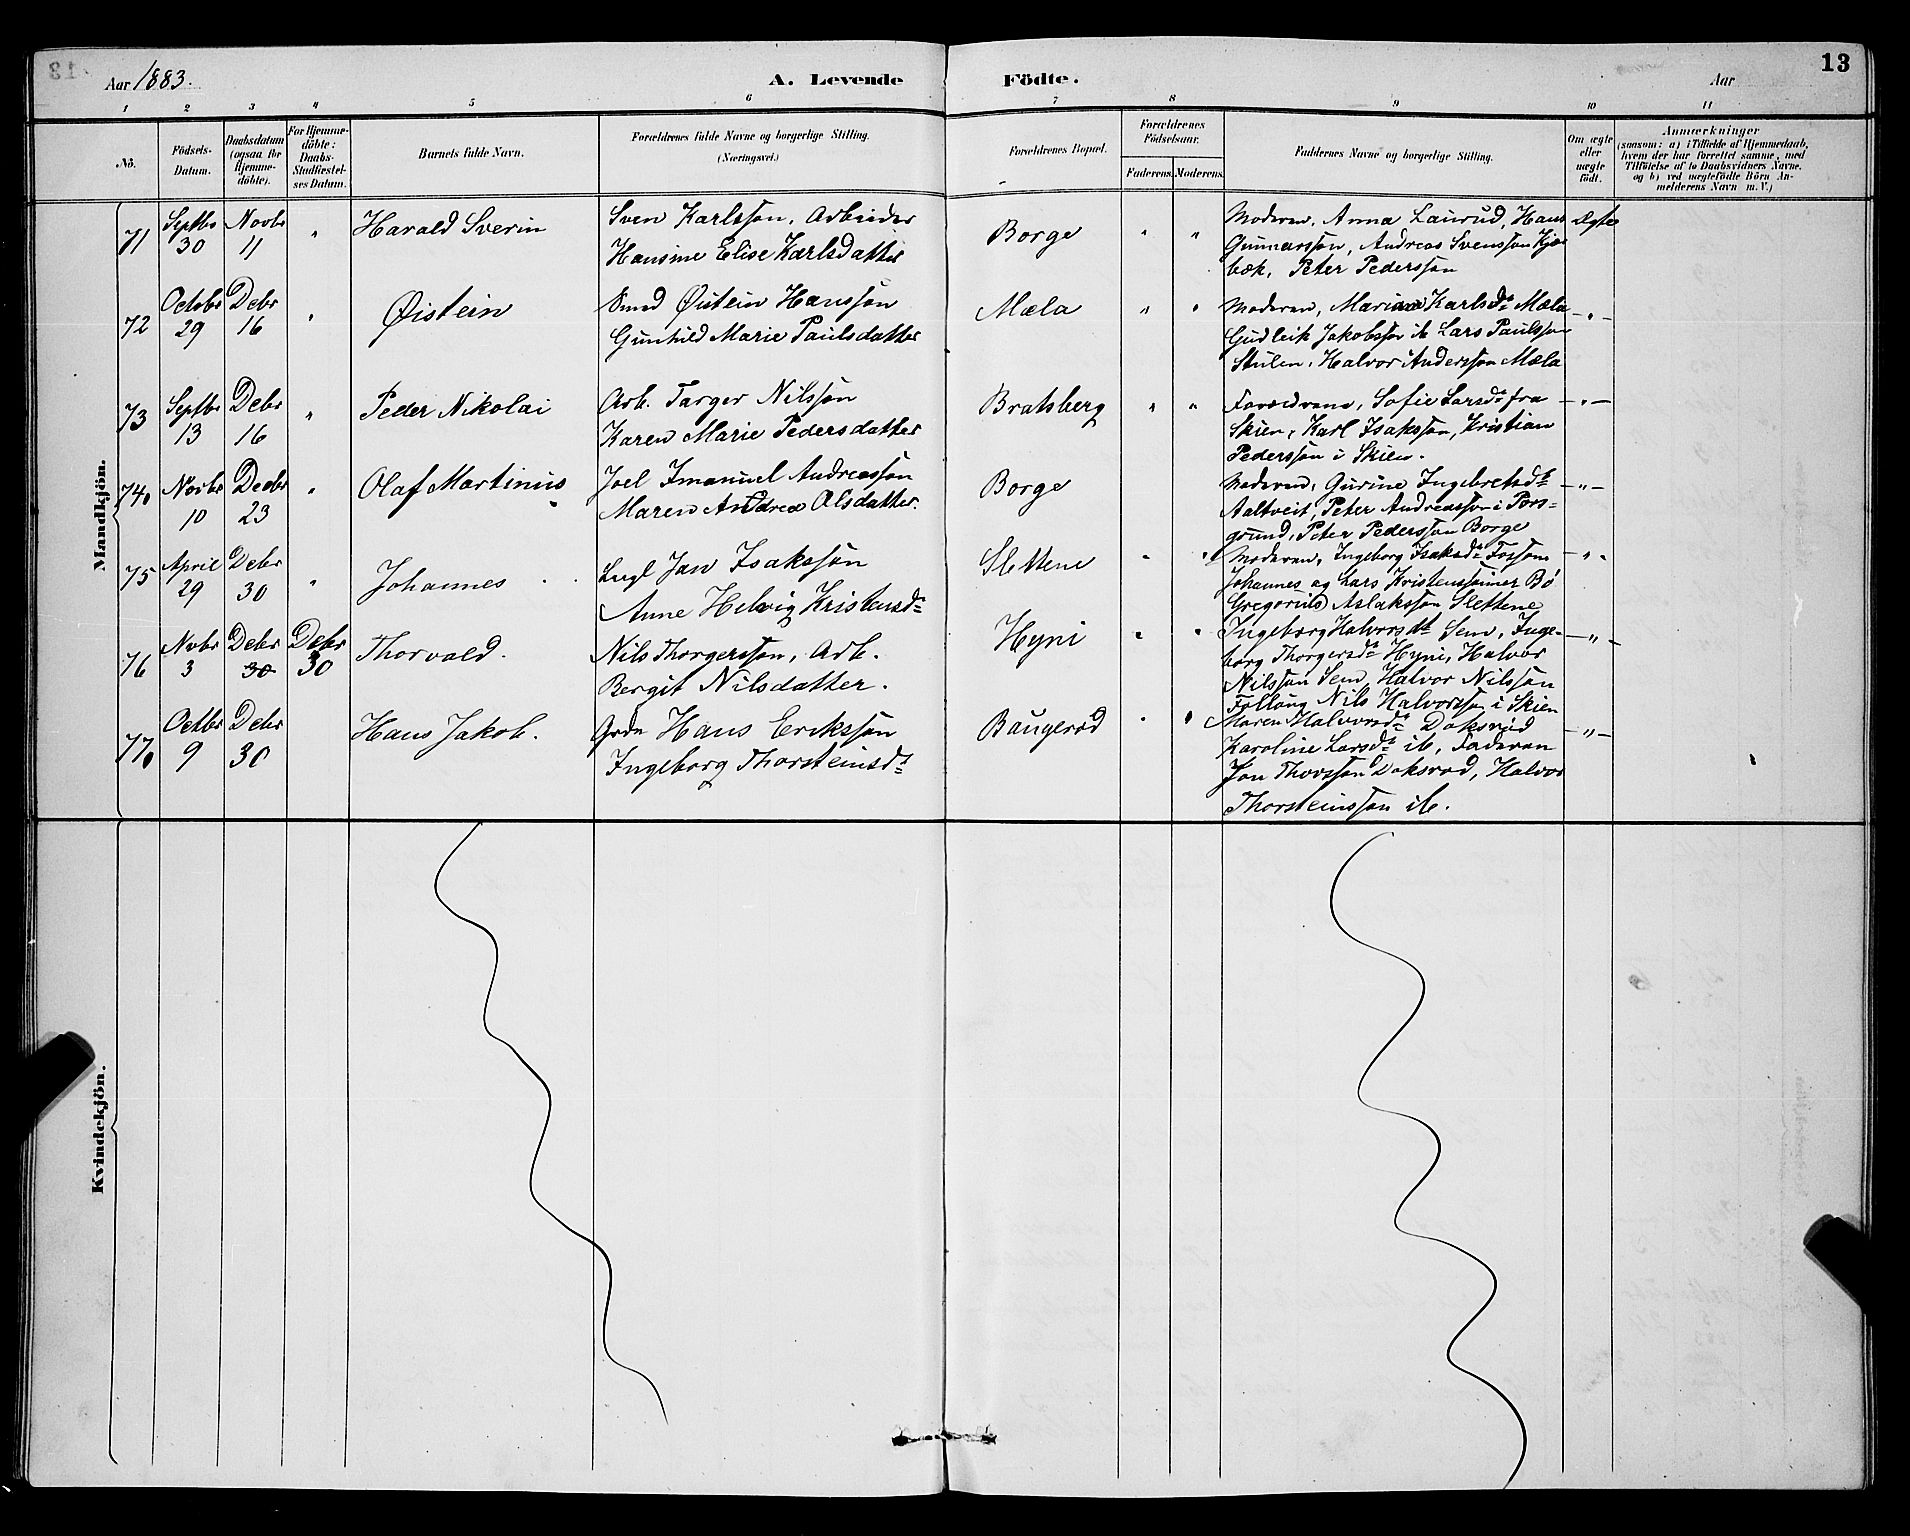 13
Aar 1883.
A. Levende Födte.
Aar
1 2 3 4 5 6 7 8 9 10 11
No.
Födsels-Datum.
Daabsdatum (ogsaa for Hjemme-döbte).
For Hjemme-döbte: Daabs-Stadfæstel-ses Datum.
Barnets fulde Navn.
Forældrenes fulde Navne og borgerlige Stilling. (Næringsvei.)
Forældrenes Bopæl.
Forældrenes Födselsaar.
Faderens. Moderens.
Faddernes Navne og borgerlige Stilling.
Om ægte eller uægte födt.
Anmærkninger
(saasom: a) i Tilfælde af Hjemmedaab, hvem der har forrettet samme, med Tilföielse af to Daabsvidners Navne, og b) ved uægtefödte Börn Anmelderens Navn m. V.)
Mandkjön.
71 Septbr 30 Novbr 11 " Harald Sverin
Sven Karlsson, Arbeider
Hansine Elise Karlsdatter
Borge " "
Moderen, Anna Laurud, Hans
Gunnarsson, Andreas Svensson Kjær
bæk, Peter Pedersson
Ægte
72 Octobr 29 Debr 16 " Øistein
Smed Øistein Hansson
Gunhild Marie Paulsdatter
Mæla " "
Moderen, Mariane Karlsdr Mæla
Gudleik Jakobsson ib Lars Paulsson
Stulen, Halvor Andersson Mæla
- " -
73 Septbr 13 Debr 16 " Peder Nikolai
Arb. Targer Nilsson
Karen Marie Pedersdatter
Bratsberg " "
Forældrene, Sofie Larsdr fra
Skien, Karl Isaksson, Kristian
Pedersson i Skien.
- " -
74. Novbr 10 Decbr 23 " Olaf Martinius
Joel Imanuel Andreasson
Maren Andrea Olsdatter.
Borge
Moderen, Gurine Ingebretsdr
Aaltveit, Peter Andreasson i Pors-
grund, Peter Pedersson Borge
- " -
75 April 29 Debr 30 " Johannes
Lugl Jan Isaksson
Anne Helvig Kristensdr
Slettene " "
Moderen, Ingeborg Isaksdr Fossum
Johannes og Lars Kristenssønner Bö
Gregorius Aslaksson Slettene
- " -
76 Novbr 3 Debr 30 Debr 30 Thorvald.
Nils Thorgersson, Arb.
Bergit Nilsdatter.
Hyni " "
Ingeborg Halvorsdt Sem, Inge-
borg Thorgersdr Hyni, Halvor
Nilsson Sem, Halvor Nilsson
Follaug Nils Halvorsson i Skien
- " -
77. Octbr 9 Debr 30 Hans Jakob.
Grdr Hans Eriksson
Ingeborg Thorsteinsdr
Baugerød " "
Maren Halvorsdr Daksrød
Karoline Larsdr ib, Faderen
Jon Thorsson Daksrød, Halvor
Thorsteinsson ib.
- " -
Kvindekjön.